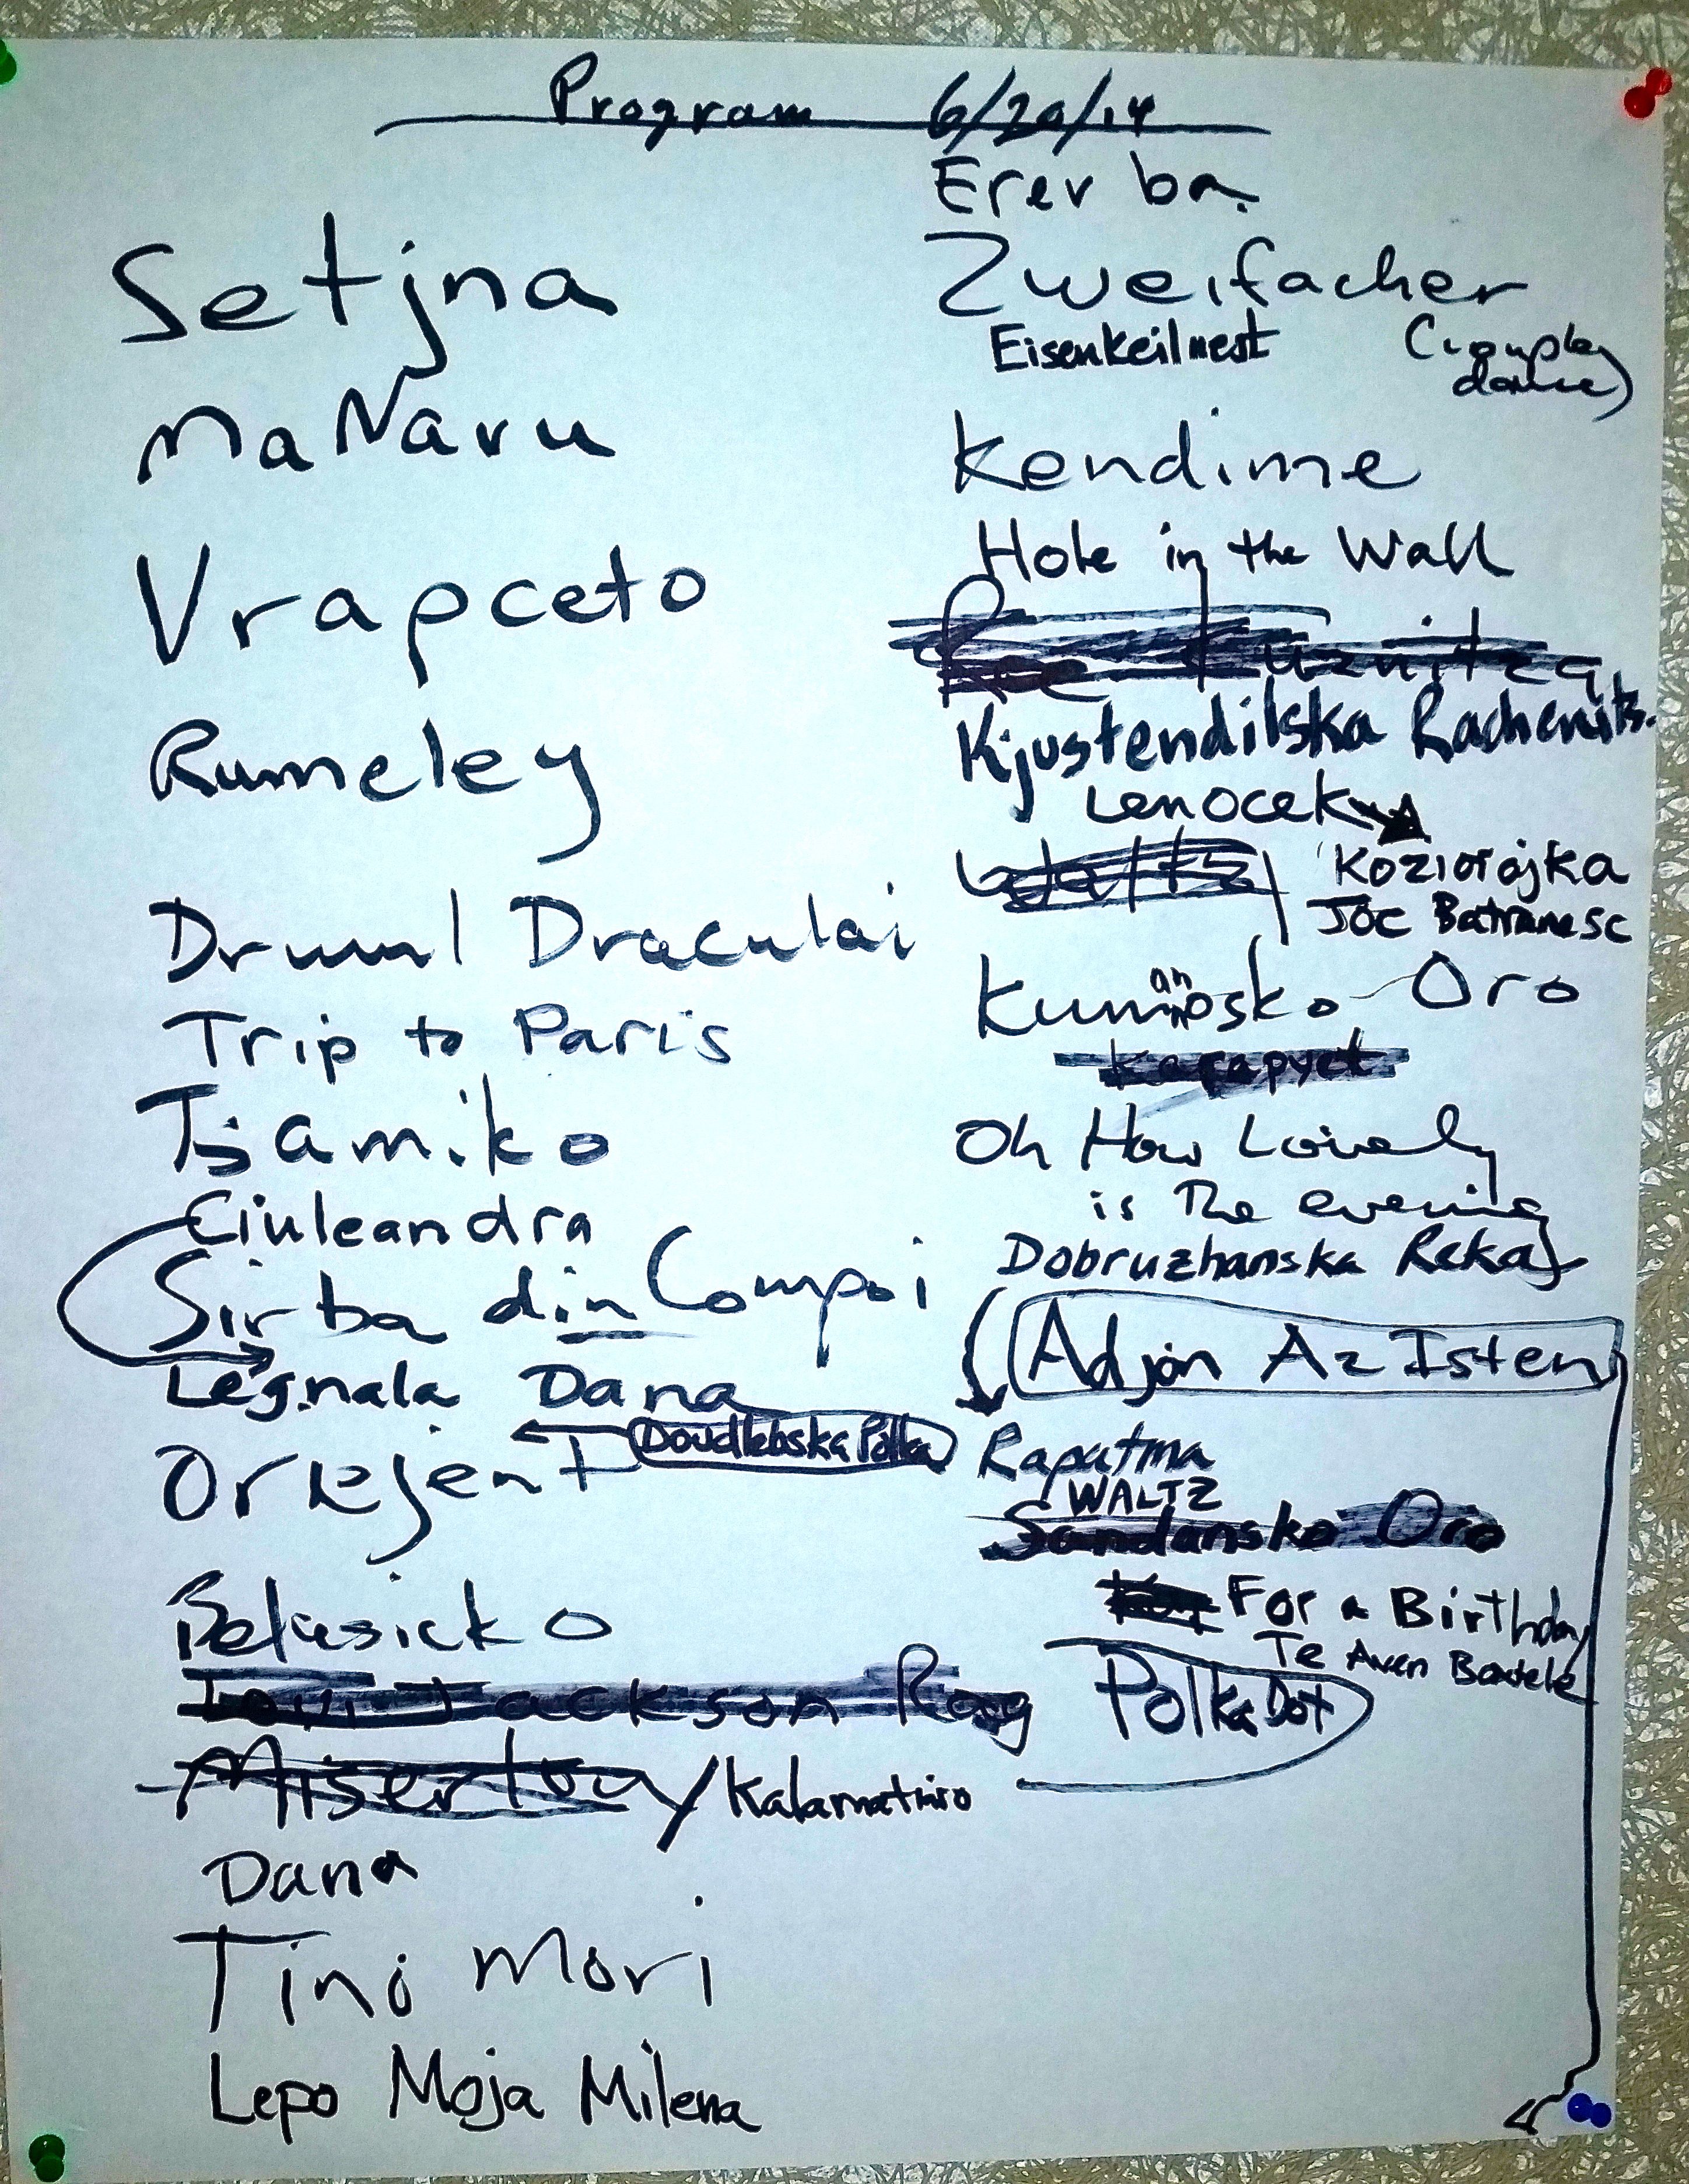 Program 6/20/14
Setjna
Ma Navu
Vrapceto
Rumeley
Drumul Draculai
Trip to Paris
Tsamiko
Ciuleandra
Sirba din Compoi
Legnala Dana
Doudlebska Polka
Orijent
Belasicko
Jackson Rag
Miserlou / Kalamatiano
Dana
Tino Mori
Lepo Moja Milena
Erev ba.
Zweifacher
Eisenkeilnest (couples dance)
Kendime
Hole in the Wall
Kuznitza
Kjustendilska Rachenits.
Lenocek
Waltz
Koziorajka
Joc Batranesc
Kumanosko Oro
Karapyet
Oh How Lovely
is The evening
Dobruzhanska Reka
Adjon Az Isten
Rapatma
WALTZ
Sandansko Oro
For a Birthday
Te Aven Baxtele
Polka Dot